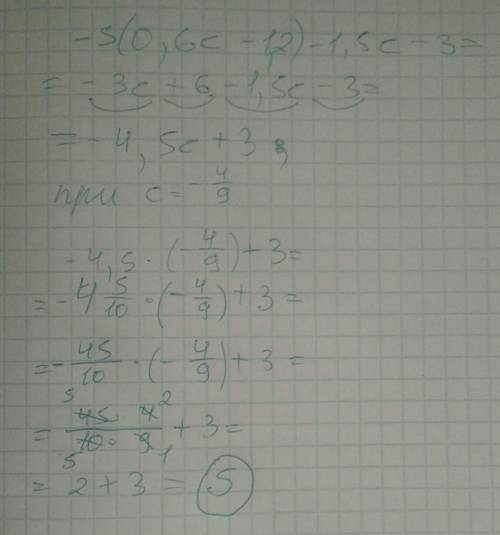 -5(0,6c - 1,2) - 1,5c - 3 =
= - 3c + 6 - 1,5c - 3 =
= - 4,5c + 3 ;
при c = - 4/9
- 4,5 · (- 4/9) + 3 =
= - 4 5/10 · (- 4/9) + 3 =
= - 45/10 · (- 4/9) + 3 =
= 5 45 · 4 2 / 5 10 · 9 1 + 3 =
= 2 + 3 = 5